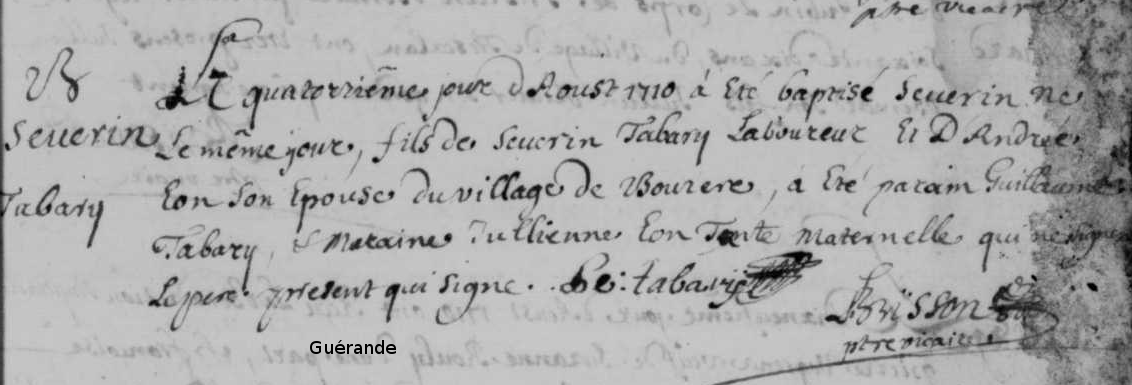 ptre vicaire
B
Severin
Tabary
Le quatorziême jour d Aoust 1710 á Eté baptisé Severin ne
Le même jour, fils de Severin Tabary Laboureur Et D'Andreé
Eon Son Epouse du village de Bourere, á Eté parain Guillaume
Tabary, & Maraine Jullienne Eon Tante maternelle qui ne signe
Le pere present qui signe. Se: tabary
Brisson
ptre vicaire
Guérande